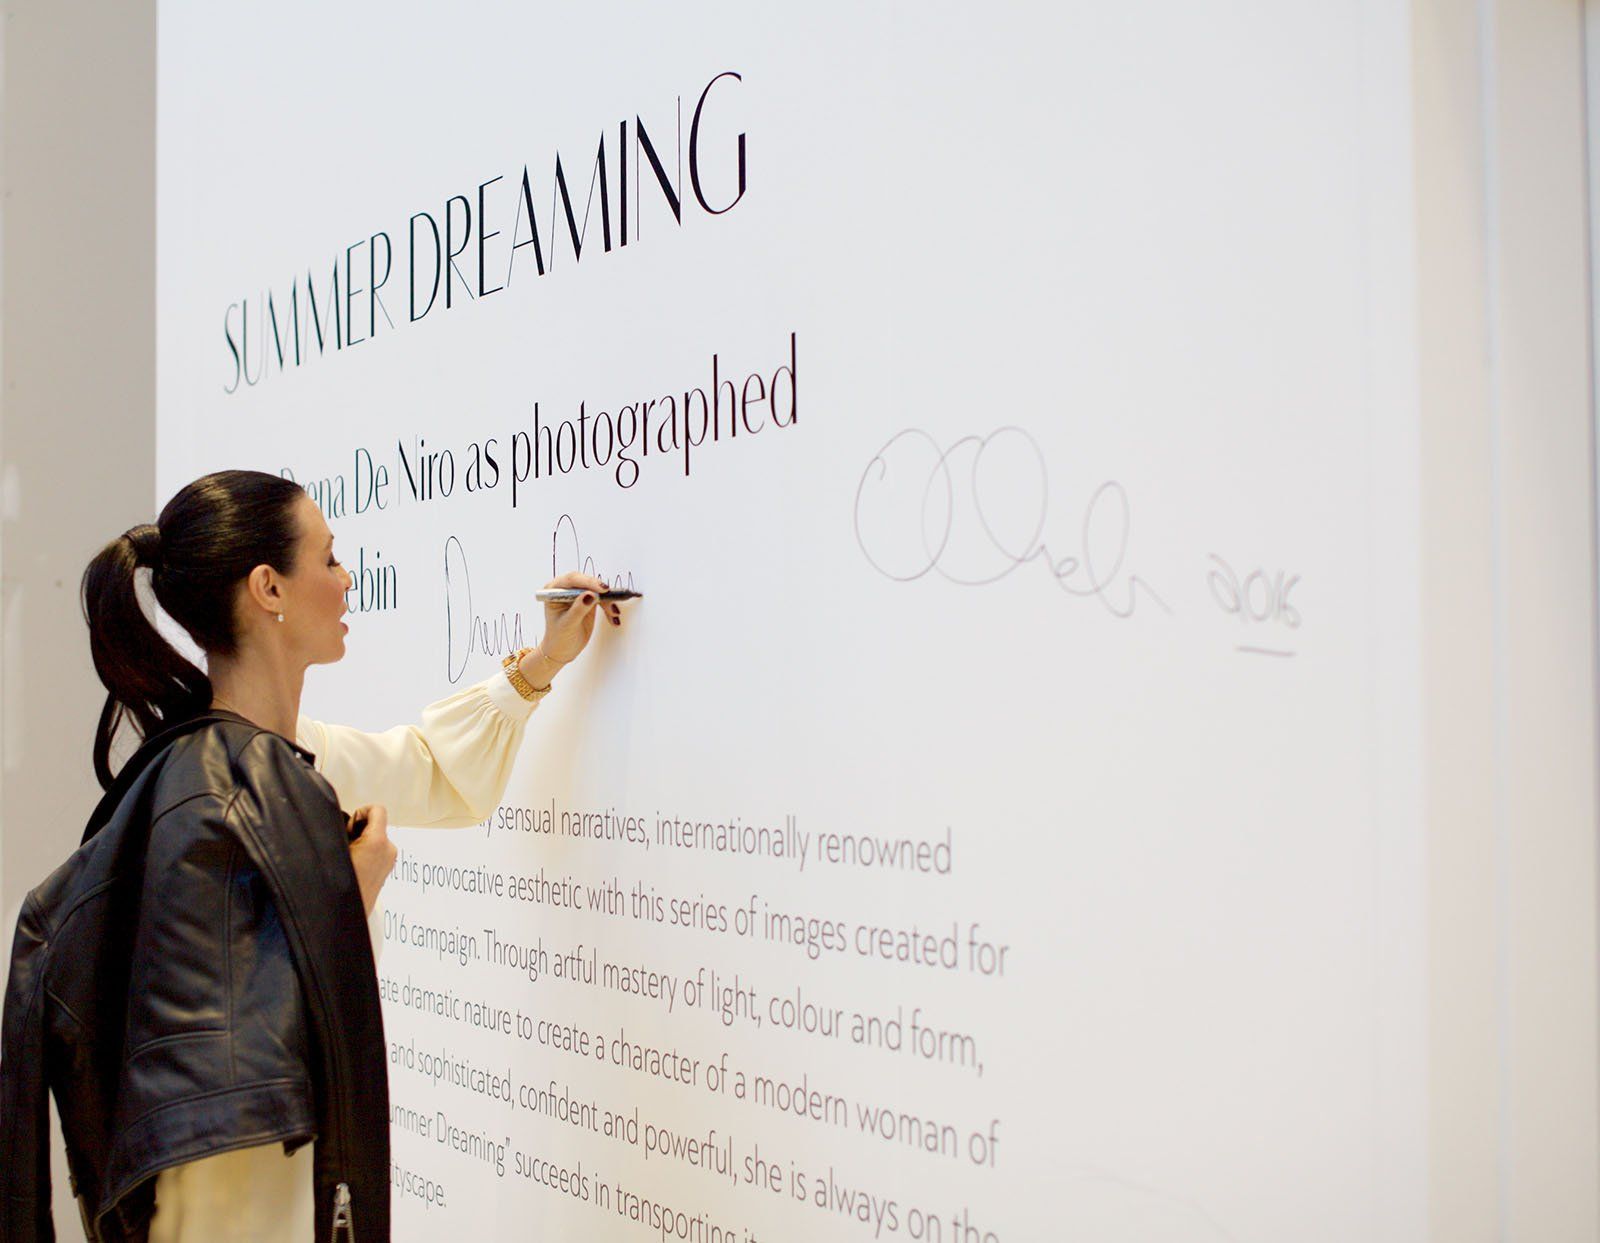 SUMMER DREAMING
Drena De Niro as photographed
ebin
Drena De
2016
sensual narratives, internationally renowned
his provocative aesthetic with this series of images created for
016 campaign. Through artful mastery of light, colour and form,
ate dramatic nature to create a character of a modern woman of
and sophisticated, confident and powerful, she is always on the
ummer Dreaming" succeeds in transporting it
ityscape.